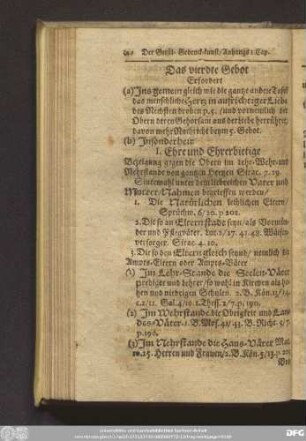 Der Geistl. Gedenck-kunst/Anhangs 1 Cap.
Das vierdte Gebot
Erfordert
(a) Ins gemein gleich wie die gantze andere Tafel
das menschliche Hertz in auffrichtiger Liebe
des Nechsten droben p. 5. (und vornemlich die
Obern deren Gehorsam aus der liebe herrühre;
davon mehr Nachricht beym 5. Gebot.
(b) Insonderheit
I. Ehre und Ehrerbietige
Bezeigung gegen die Obern im Lehr-Wehr-und
Nehrstande von gantzem Hertzen Sirac. 7. 29.
Sintemahl unter dem lieberlichen Vater und
Mutter-Nahmen begriffen werden/
1. Die Natürlichen leiblichen Eltern/
Sprüchw. 6/20. p 202.
2. Die so an Elern stadt seyn/ als Vormün-
der und Pflegväter. Luc. 2/27. 41. 48. Wäisen
versorger. Sirac. 4. 10.
3. Die so den Eltern gleich seynd/ nemlich die
Ampts-Eltern oder Ampts-Väter
(1) Im Lehr-Stande die Seelen-Väter
prediger und lehrer/ so wohl in Kirchen als ho-
hen und niedrigen Schulen. 2. B. Kön. 13/14.
c. 2/12. Gal. 4/19. 1. Thess. 2/7. p. 190.
(2) Im Wehrstande die Obrigkeit und Lan-
des-Väter. 1. B. Mos. 41/43. B. Richt. 5/7.
p. 196.
(3) Im Nehrstande die Haus-Väter Mat.
10. 25. Herren und Frauen/ 2. B. Kön. 5/13. p. 221